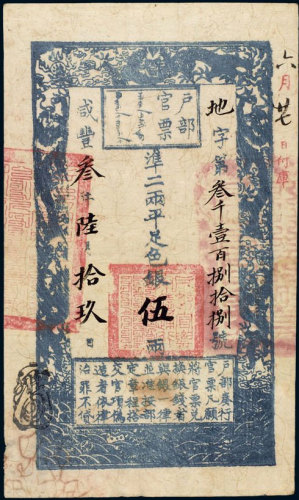 六月廿日付庫
戶部官票
地字第叁千壹百捌拾捌號
準二兩平足色銀伍兩
咸豐叁年陸月拾玖日
戶部奏行
官票凡願
將官票兌
換銀錢者
與銀一律
並准按部
定章程搭
交官項偽
造者依律
治罪不貸